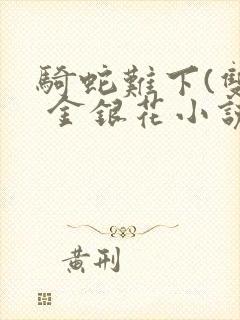 騎蛇難下(雙
金銀花小說
黃刑